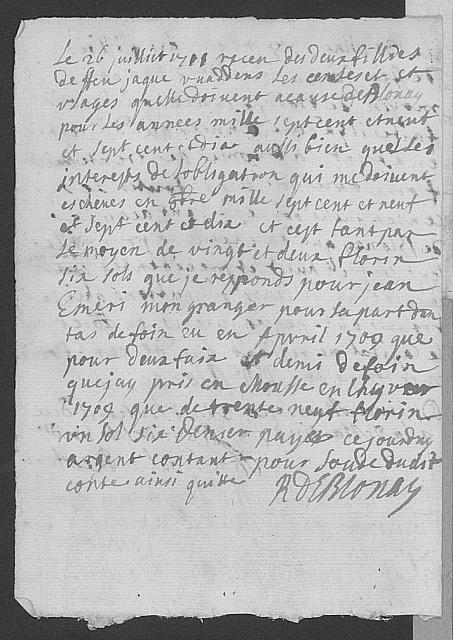 Le 26 juilliet 1711 receu des deux filles
de ffeu jaque vuaddens les censes et et
vsages quelle doivent a cause de Blonay
pour les années mille sept cent et neuf
et sept cent et dix aussi bien que les
interepts de lobligation qui me doivent
escheues en 8bre mille sept cent et neuf
et sept cent et dix et cept tant par
le moyen de vingt et deux florin
six sols que je responds pour jean
Emeri mon granger pour sa part dun
tas de foin eu en Apvril 1709 que
pour deux faix et demi de foin
que jay pris en Mousse en lhyver
1709 que de trente neuf florin
vn sol six denier payes ce jourdhuy
argent contant pour soude dudit
conte ainsi quitte R DE Blonay